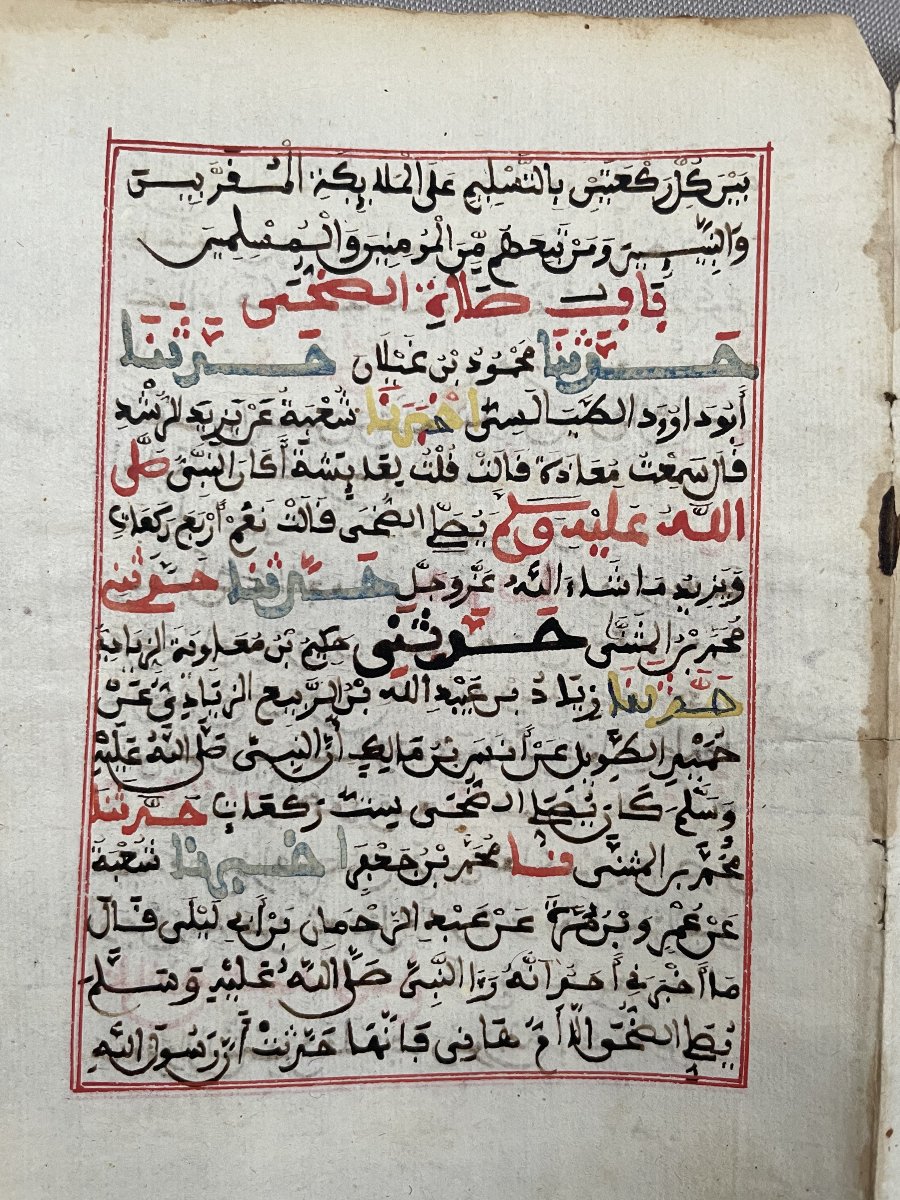 بَيْنَ كُلِّ رَكْعَتَيْنِ بِالتَّسْلِيمِ عَلَى الْمَلَائِكَةِ الْمُقَرَّبِينَ
وَالنَّبِيِّينَ وَمَنْ تَبِعَهُمْ مِّنَ الْمُومِنِينَ وَالْمُسْلِمِينَ
بَابُ صَلَاةِ الضُّحَى
حَدَّثَنَا مَحْمُودُ بْنُ غَيْلَانَ حَدَّثَنَا
أَبُو دَاوُودَ الطَّيَالِسِيُّ اخْبَرَنَا شُعْبَةُ عَنْ يَزِيدَ الرِّشْكِ
قَالَ سَمِعْتُ مُعَاذَةَ قَالَتْ قُلْتُ لِعَائِشَةَ أَكَانَ النَّبِيُّ صَلَّى
اللَّهُ عَلَيْهِ وَسَلَّمَ يُصَلِّي الضُّحَى قَالَتْ نَعَمْ أَرْبَعَ رَكَعَاتٍ
وَيَزِيدُ مَا شَاءَ اللَّهُ عَزَّ وَجَلَّ حَدَّثَنَا حَدَّثَنِي
مُحَمَّدُ بْنُ الْمُثَنَّى حَدَّثَنِي حَكِيمُ بْنُ مُعَاوِيَةَ الزِّيَادِيُّ
حَدَّثَنَا زِيَادُ بْنُ عُبَيْدِ اللَّهِ بْنِ الرَّبِيعِ الزِّيَادِيُّ عَنْ
حُمَيْدٍ الطَّوِيلِ عَنْ أَنَسِ بْنِ مَالِكٍ أَنَّ النَّبِيَّ صَلَّى اللَّهُ عَلَيْهِ
وَسَلَّمَ كَانَ يُصَلِّي الضُّحَى سِتَّ رَكَعَاتٍ حَدَّثَنَا
مُحَمَّدُ بْنُ الْمُثَنَّى ثنا مُحَمَّدُ بْنُ جَعْفَرٍ اخْبَرَنَا شُعْبَةُ
عَنْ عَمْرِو بْنِ مُرَّةَ عَنْ عَبْدِ الرَّحْمَانِ بْنِ أَبِي لَيْلَى قَالَ
مَا أَخْبَرَنِي أَحَدٌ أَنَّهُ رَءَا النَّبِيَّ صَلَّى اللَّهُ عَلَيْهِ وَسَلَّمَ
يُصَلِّي الضُّحَى إِلَّا أُمُّ هَانِي فَإِنَّهَا حَدَّثَتْ أَنَّ رَسُولَ اللَّهِ